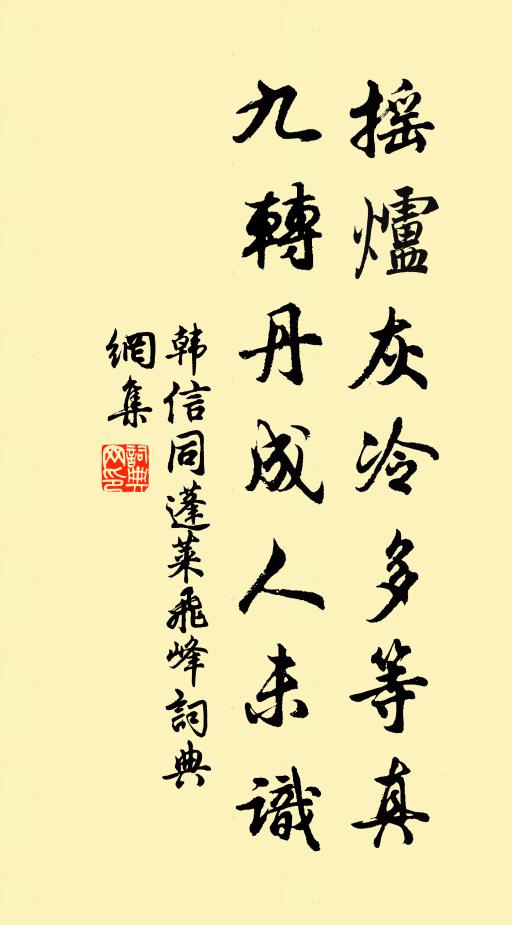 摇爐灰冷多等真
九轉丹成人未識
韩信同蓬莱飛峰詞典
網集
詞典網印